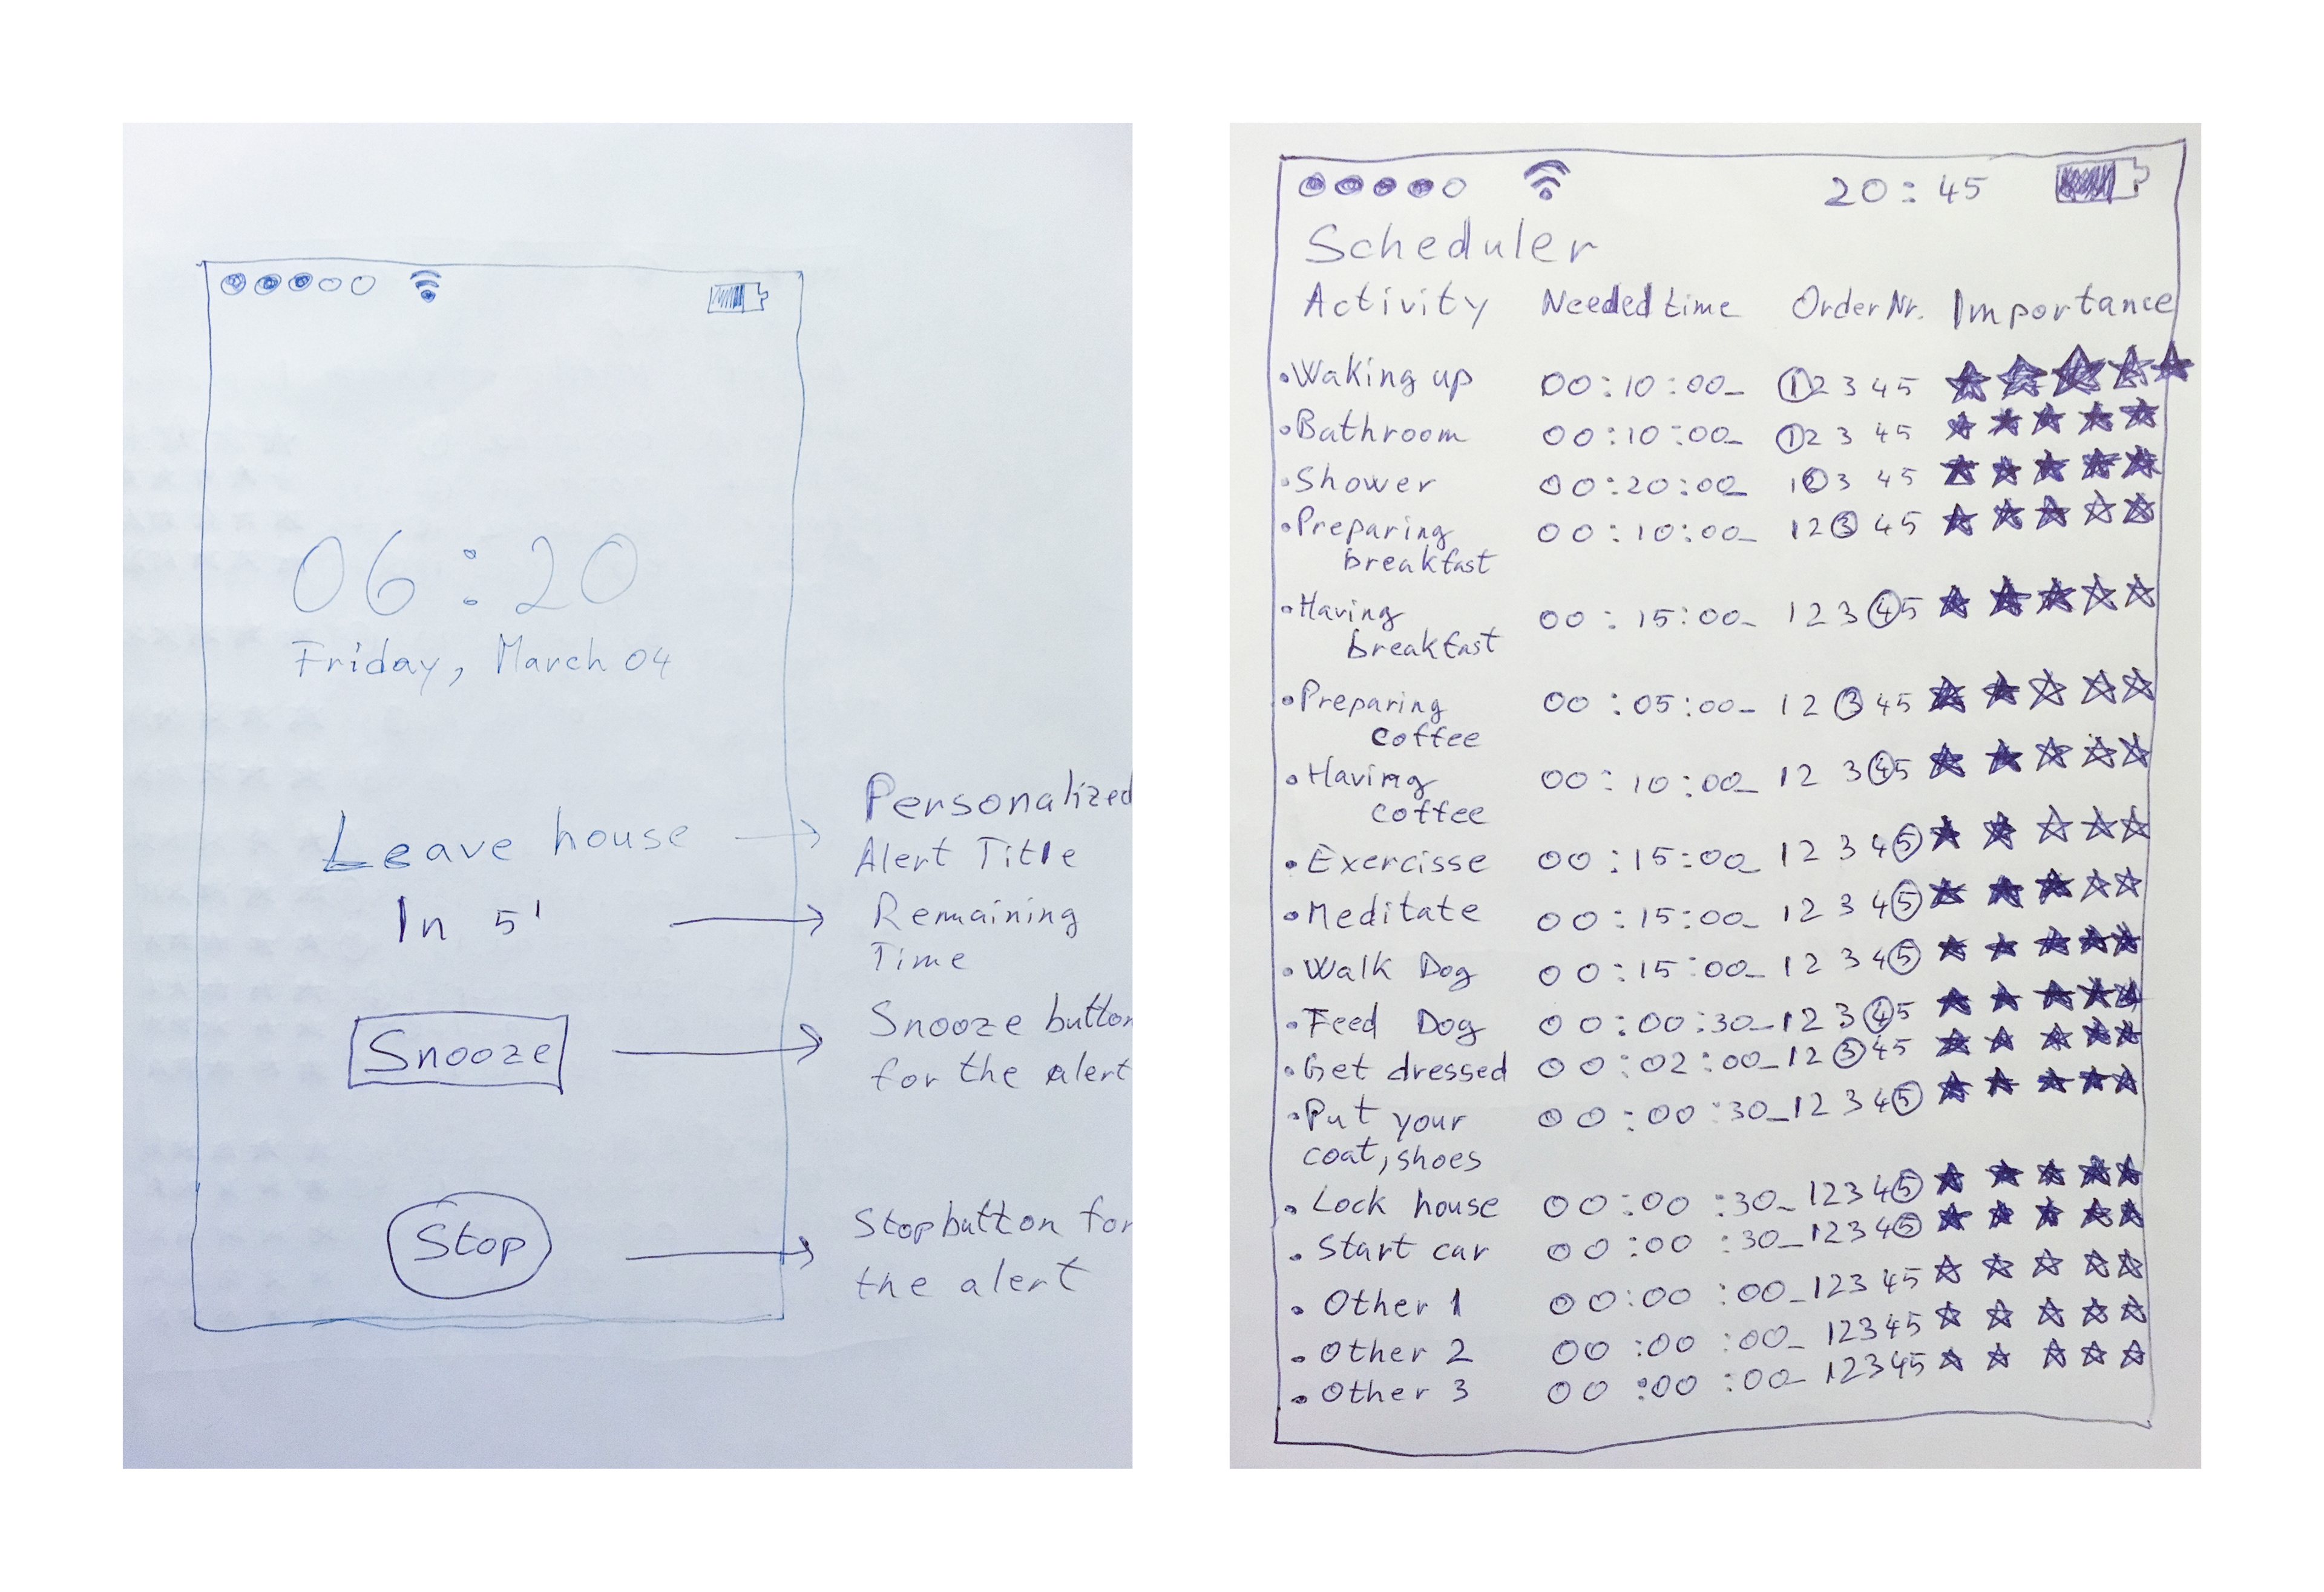 06:20
Friday, March 04
Leave house
Personalized
Alert Title
In 5'
Remaining
Time
Snooze
Snooze button
for the alert
Stop
Stop button for
the alert
20:45
Scheduler
Activity Needed time Order Nr. Importance
•Waking up 00:10:00_ 1 2 3 4 5
•Bathroom 00:10:00_ 1 2 3 4 5
•Shower 00:20:00_ 1 2 3 4 5
•Preparing 00:10:00_ 1 2 3 4 5
breakfast
•Having 00:15:00_ 1 2 3 4 5
breakfast
•Preparing 00:05:00_ 1 2 3 4 5
coffee
•Having 00:10:00_ 1 2 3 4 5
coffee
•Exercisse 00:15:00_ 1 2 3 4 5
•Meditate 00:15:00_ 1 2 3 4 5
•Walk Dog 00:15:00_ 1 2 3 4 5
•Feed Dog 00:00:30_ 1 2 3 4 5
•Get dressed 00:02:00_ 1 2 3 4 5
•Put your 00:00:30_ 1 2 3 4 5
coat, shoes
•Lock house 00:00:30_ 1 2 3 4 5
•Start car 00:00:30_ 1 2 3 4 5
•Other 1 00:00:00_ 1 2 3 4 5
•Other 2 00:00:00_ 1 2 3 4 5
•Other 3 00:00:00_ 1 2 3 4 5